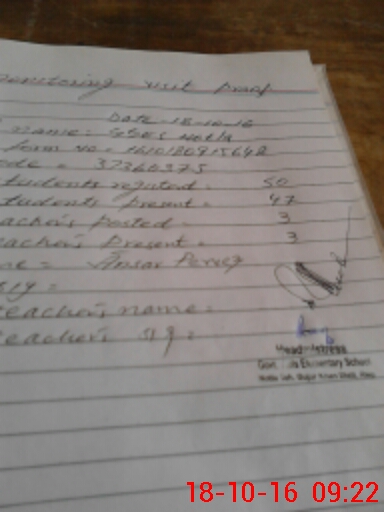 onitoring visit proof
Date - 18-10-16
name: GGES
form no = 1610180915642
ode = 37360375
tudents registed = 50
tudents present = 47
acher's posted = 3
eacher's present = 3
me = Ansar Pervez
sig =
teacher's name =
teacher's sig =
Headmistress
Elementary School
18-10-16 09:22